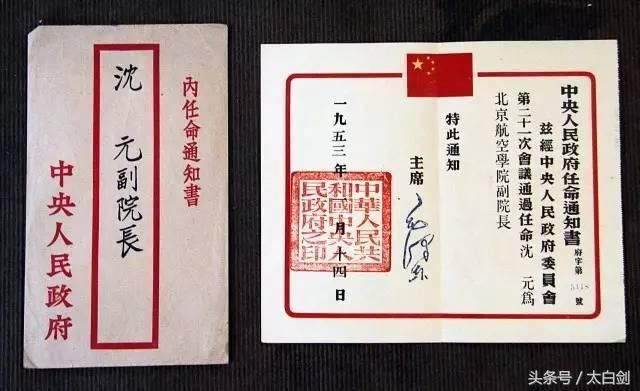 內任命通知書
沈 元副院長
中央人民政府
中央人民政府任命通知書
府字第 號
茲經中央人民政府委員會
第二十一次會議通過任命沈 元爲
北京航空學院副院長
特此通知
主席 毛澤東
一九五三年 月十四日
中華人民共
和國中央人
民政府之印
头条号 / 太白剑